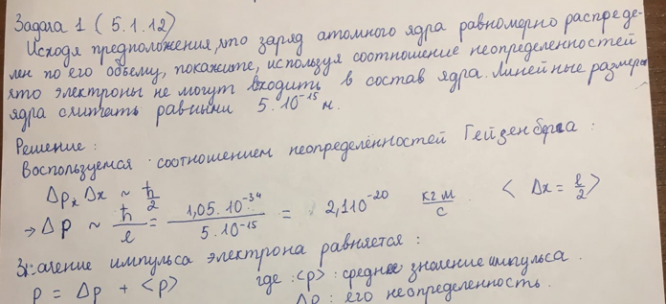 Задача 1 (5.1.12)
Исходя предположения, что заряд атомного ядра равномерно распреде-
лен по его объему, покажите, используя соотношение неопределенностей
что электроны не могут входить в состав ядра. Линейные размеры
ядра считать равными 5·10⁻¹⁵ м.
Решение:
Воспользуемся соотношением неопределённостей Гейзенберга:
Δpₓ Δx ~ ħ/2
⇒ Δp ~ ħ/ℓ = 1,05·10⁻³⁴ / 5·10⁻¹⁵ = 2,1·10⁻²⁰ кг м/с < Δx = ℓ/2 >
Значение импульса электрона равняется:
p = Δp + <p> где: <p>: среднее значение импульса.
Δp: его неопределенность.